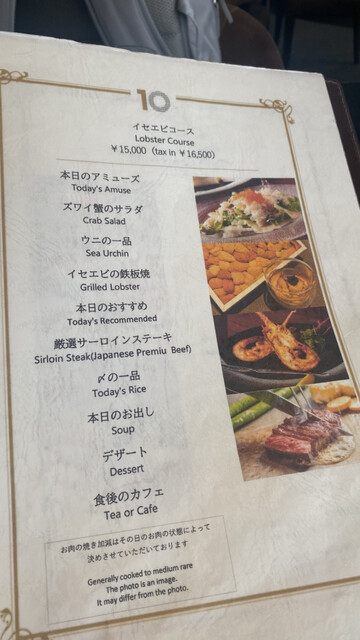 10
イセエビコース
Lobster Course
￥15,000（tax in ￥16,500）
本日のアミューズ
Today's Amuse
ズワイ蟹のサラダ
Crab Salad
ウニの一品
Sea Urchin
イセエビの鉄板焼
Grilled Lobster
本日のおすすめ
Today's Recommended
厳選サーロインステーキ
Sirloin Steak(Japanese Premiu Beef)
〆の一品
Today's Rice
本日のお出し
Soup
デザート
Dessert
食後のカフェ
Tea or Cafe
お肉の焼き加減はその日のお肉の状態によって
決めさせていただいております
Generally cooked to medium rare
The photo is an image.
It may differ from the photo.